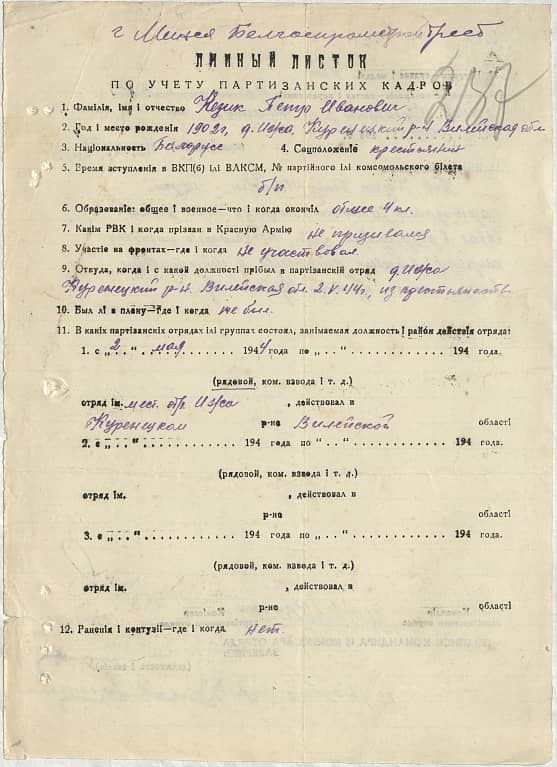 г Минск Белгоспрометройтрест
ЛИЧНЫЙ ЛИСТОК
ПО УЧЕТУ ПАРТИЗАНСКИХ КАДРОВ
237
1. Фамілія, імя і отчество Козик Петр Иванович
2. Год і место рождения 1902г, д. Ижа, Куренецкий р-н Вилейская обл
3. Національность Белорусс 4. Соцположеніе крестьянин
5. Время вступления в ВКП(б) ілі ВЛКСМ, № партійного ілі комсомольского білета
б/п
6. Образование: общее і военное—что і когда окончіл общее 4 кл.
7. Какім РВК і когда прізван в Красную Армію не призывался
8. Участіе на фронтах—где і когда не участвовал
9. Откуда, когда і с какой должності прібыл в партізанскій отряд д. Ижа
Куренецкий р-н. Вилейская обл. 2.V.44г., из крестьянств
10. Был лі в плену—где і когда не был.
11. В какіх партізанскіх отрядах ілі группах состоял, занімаемая должность і район действія отряда:
1. с „2.“ мая 1944 года по „..“ 194 года.
(рядовой, ком. взвода і т. д.)
отряд ім. мест. отр. Ижа , действовал в
Куренецком р-не Вилейской області
2. с „..“ 194 года по “..“ 194 года.
(рядовой, ком. взвода і т. д.)
отряд ім. , действовал в
р-не області
3. с „..“ 194 года по „..“ 194 года.
(рядовой, ком. взвода і т. д.)
отряд ім. , действовал в
р-не області
12. Раненія і контузіі—где і когда нет.